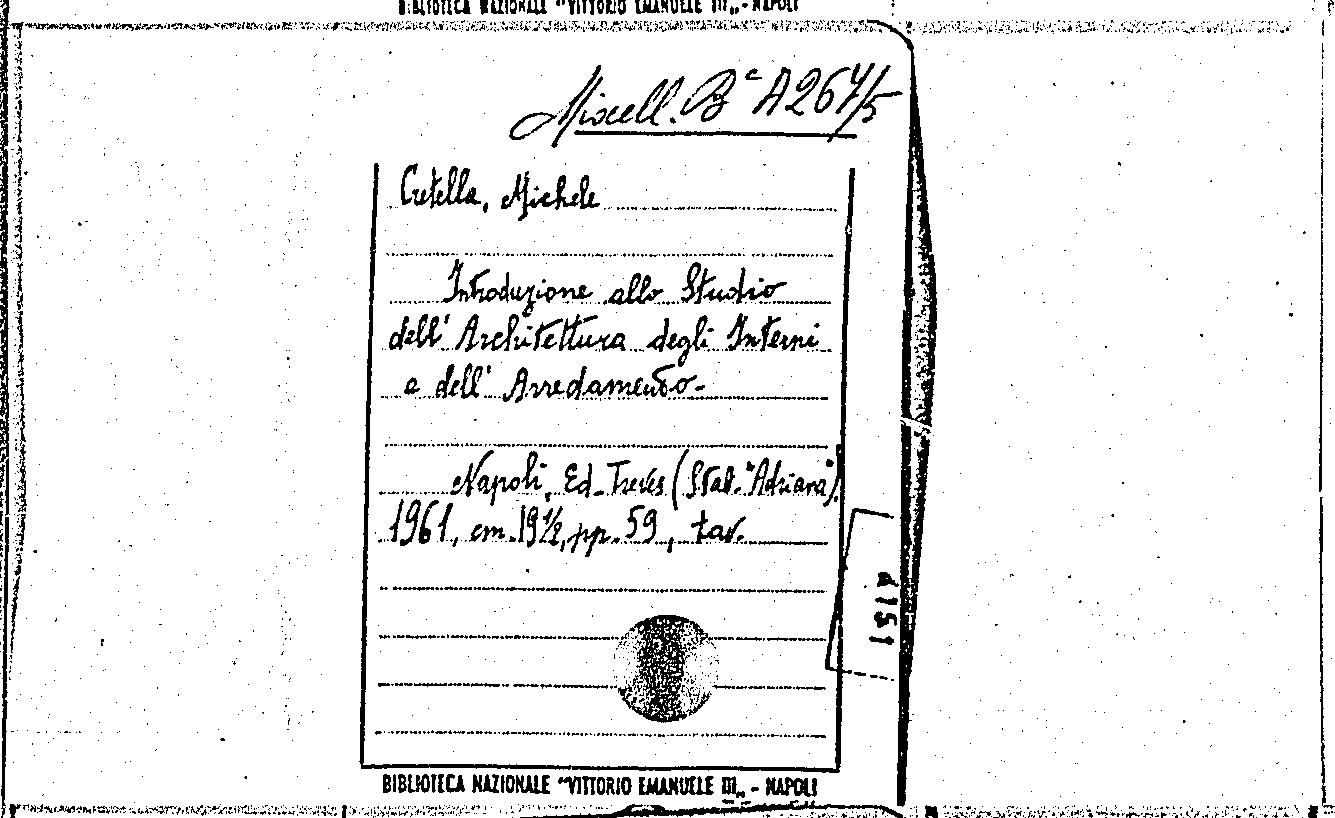 BIBLIOTECA NAZIONALE "VITTORIO EMANUELE III„ - NAPOLI
Miscell. Bᶜ A264/5
Cretella, Michele
Introduzione allo Studio
dell'Architettura degli Interni
e dell'Arredamento-
Napoli, Ed. Treves (Stab. "Adriana").
1961, cm. 19½, pp. 59, tav.
4151
BIBLIOTECA NAZIONALE "VITTORIO EMANUELE III„ - NAPOLI